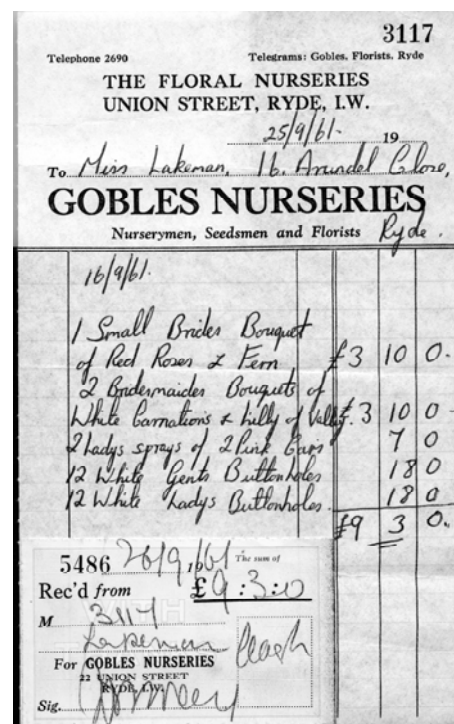 3117
Telephone 2690 Telegrams: Gobles, Florists, Ryde
THE FLORAL NURSERIES
UNION STREET, RYDE, I.W.
25/9/61. 19
To Miss Lakeman, 16. Arundel Close,
GOBLES NURSERIES
Nurserymen, Seedsmen and Florists Ryde.
16/9/61.
1 Small Brides Bouquet
of Red Roses & Fern £3 10 0.
2 Bridesmaides Bouquets of
White Carnations & Lilly of Valley. £3 10 0
2 Ladys sprays of 2 Pink Cars 7 0
12 White Gents Buttonholes 18 0
12 White Ladys Buttonholes. 18 0
£9 3 0.
5486 26/9/1961 The sum of
Rec'd from £9:3:0
M 3117
Lakeman
For GOBLES NURSERIES
22 UNION STREET
RYDE, I.W.
Sig.